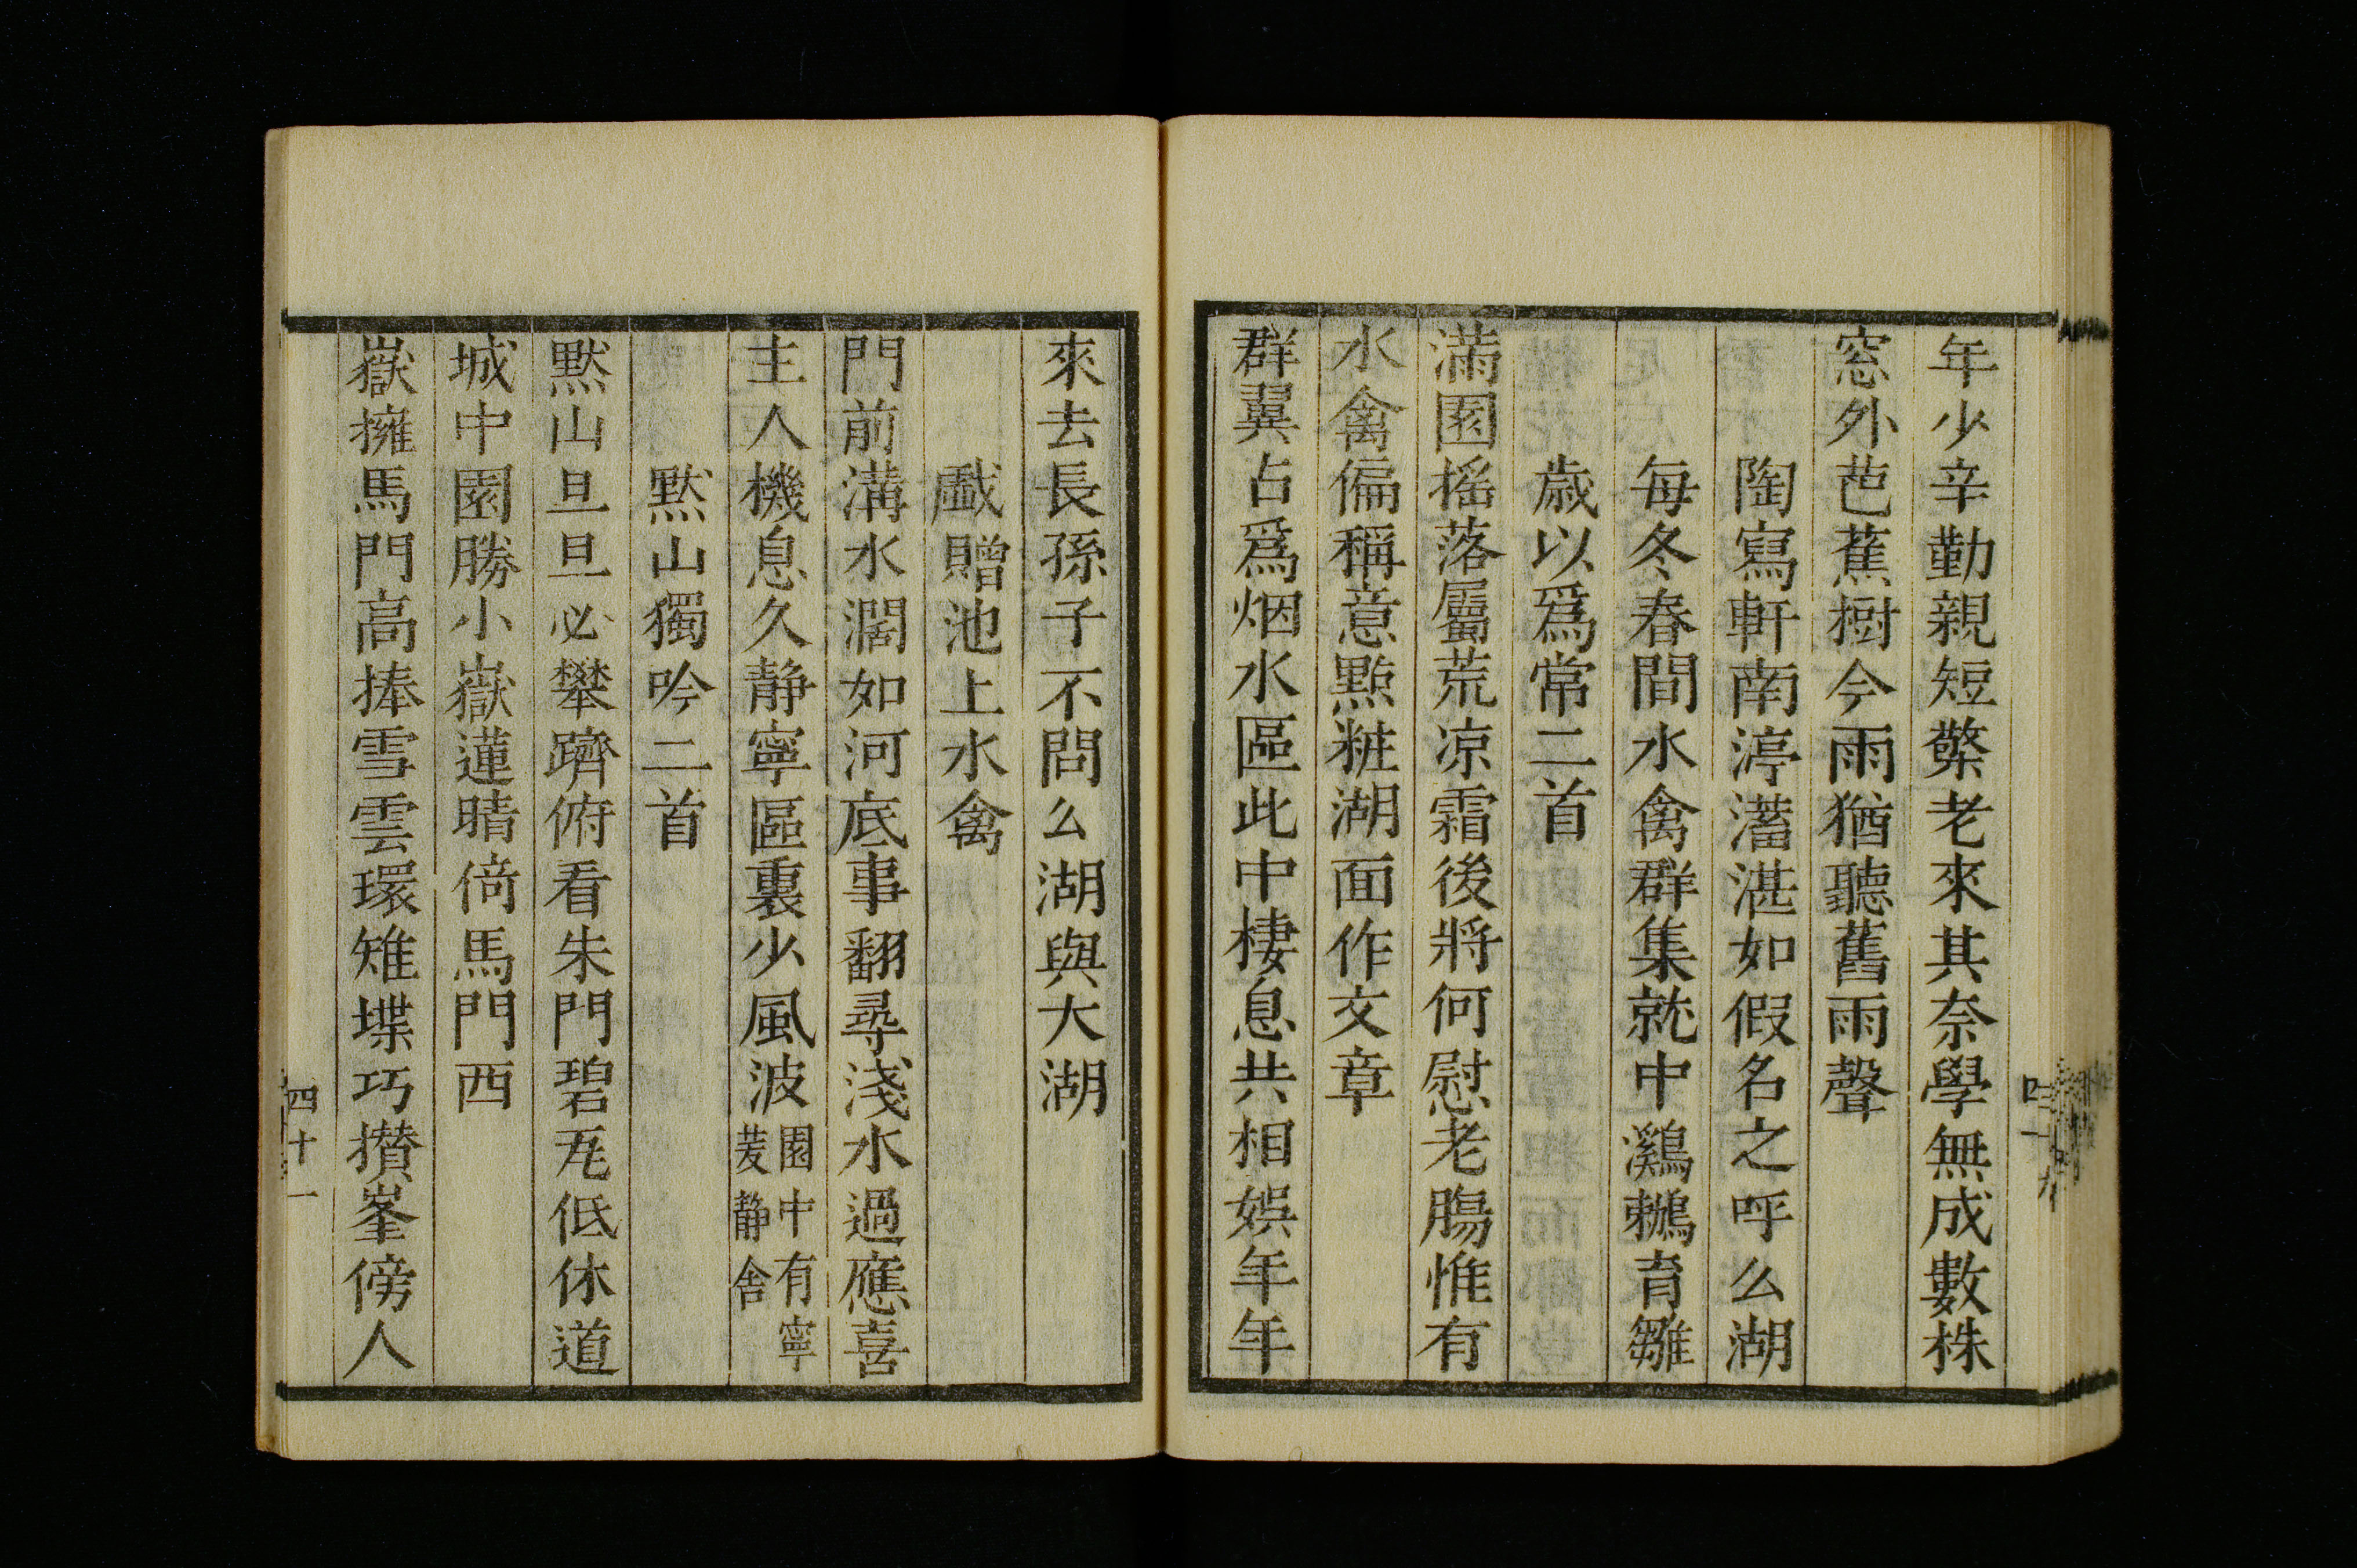 年少辛勤親短檠老來其奈學無成數株
窓外芭蕉樹今雨猶聽舊雨聲
陶寫軒南渟滀湛如假名之呼么湖
每冬春間水禽群集就中鸂鶒育雛
歳以爲常二首
滿園搖落屬荒凉霜後將何慰老腸惟有
水禽偏稱意點粧湖面作文章
群翼占爲烟水區此中棲息共相娯年年
來去長孫子不問么湖與大湖
戲贈池上水禽
門前溝水濶如河底事翻尋淺水過應喜
主人機息久静寧區裏少風波園中有寧
菱静舎
黙山獨吟二首
黙山旦旦必攀躋俯看朱門碧瓦低休道
城中園勝小嶽蓮晴倚馬門西
嶽擁馬門高捧雪雲環雉堞巧攅峯傍人
四十一